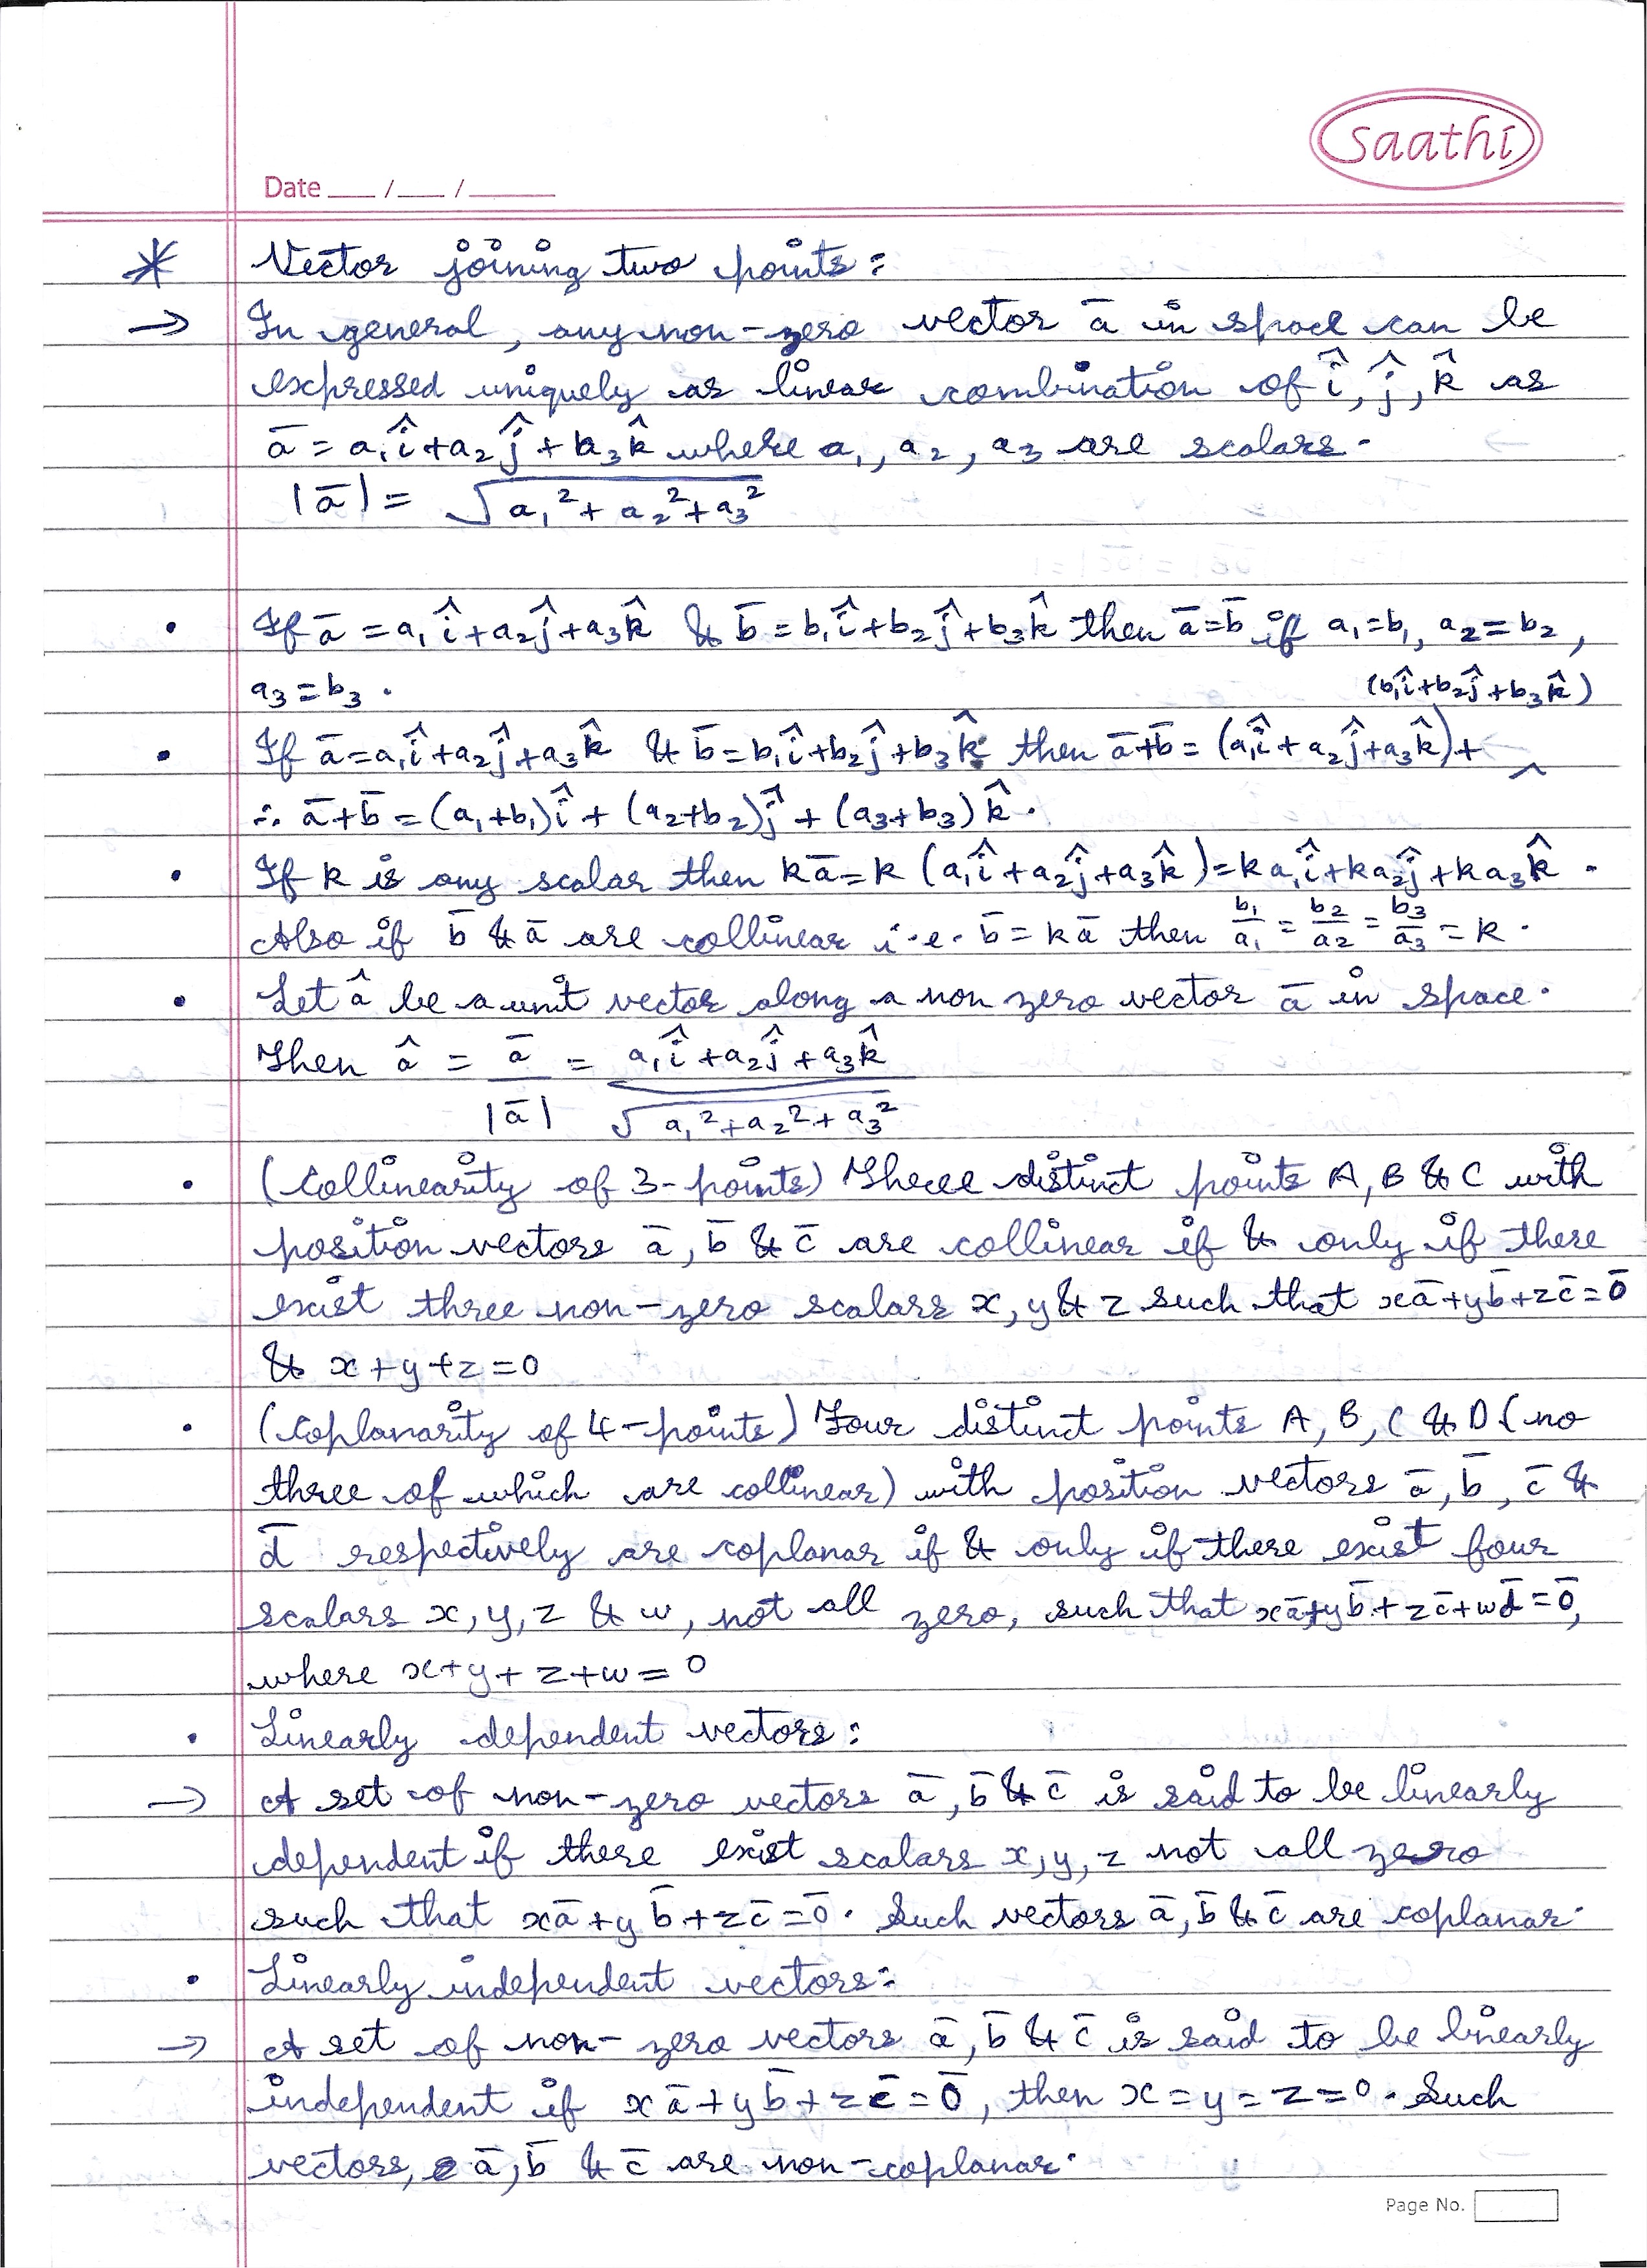 Saathi
Date ___ / ___ / _____
* Vector joining two points:
→ In general, any non-zero vector a̅ in space can be
expressed uniquely as linear combination of î, ĵ, k̂ as
a̅ = a₁î + a₂ĵ + a₃k̂ where a₁, a₂, a₃ are scalars.
|a̅| = √(a₁² + a₂² + a₃²)
• If a̅ = a₁î + a₂ĵ + a₃k̂ & b̅ = b₁î + b₂ĵ + b₃k̂ then a̅ = b̅ if a₁ = b₁, a₂ = b₂,
a₃ = b₃.
(b₁î + b₂ĵ + b₃k̂)
• If a̅ = a₁î + a₂ĵ + a₃k̂ & b̅ = b₁î + b₂ĵ + b₃k̂ then a̅ + b̅ = (a₁î + a₂ĵ + a₃k̂) +
∴ a̅ + b̅ = (a₁ + b₁)î + (a₂ + b₂)ĵ + (a₃ + b₃)k̂.
• If k is any scalar then ka̅ = k (a₁î + a₂ĵ + a₃k̂) = ka₁î + ka₂ĵ + ka₃k̂.
Also if b̅ & a̅ are collinear i.e. b̅ = ka̅ then b₁/a₁ = b₂/a₂ = b₃/a₃ = k.
• Let â be a unit vector along a non zero vector a̅ in space.
Then â = a̅/|a̅| = (a₁î + a₂ĵ + a₃k̂)/√(a₁² + a₂² + a₃²)
• (Collinearity of 3-points) Three distinct points A, B & C with
position vectors a̅, b̅ & c̅ are collinear if & only if there
exist three non-zero scalars x, y & z such that xa̅ + yb̅ + zc̅ = 0̅
& x + y + z = 0
• (Coplanarity of 4-points) Four distinct points A, B, C & D (no
three of which are collinear) with position vectors a̅, b̅, c̅ &
d̅ respectively are coplanar if & only if there exist four
scalars x, y, z & w, not all zero, such that xa̅ + yb̅ + zc̅ + wd̅ = 0̅,
where x + y + z + w = 0
• Linearly dependent vectors:
→ A set of non-zero vectors a̅, b̅ & c̅ is said to be linearly
dependent if there exist scalars x, y, z not all zero
such that xa̅ + yb̅ + zc̅ = 0̅. Such vectors a̅, b̅ & c̅ are coplanar.
• Linearly independent vectors:
→ A set of non-zero vectors a̅, b̅ & c̅ is said to be linearly
independent if xa̅ + yb̅ + zc̅ = 0̅, then x = y = z = 0. Such
vectors, a̅, b̅ & c̅ are non-coplanar.
Page No.